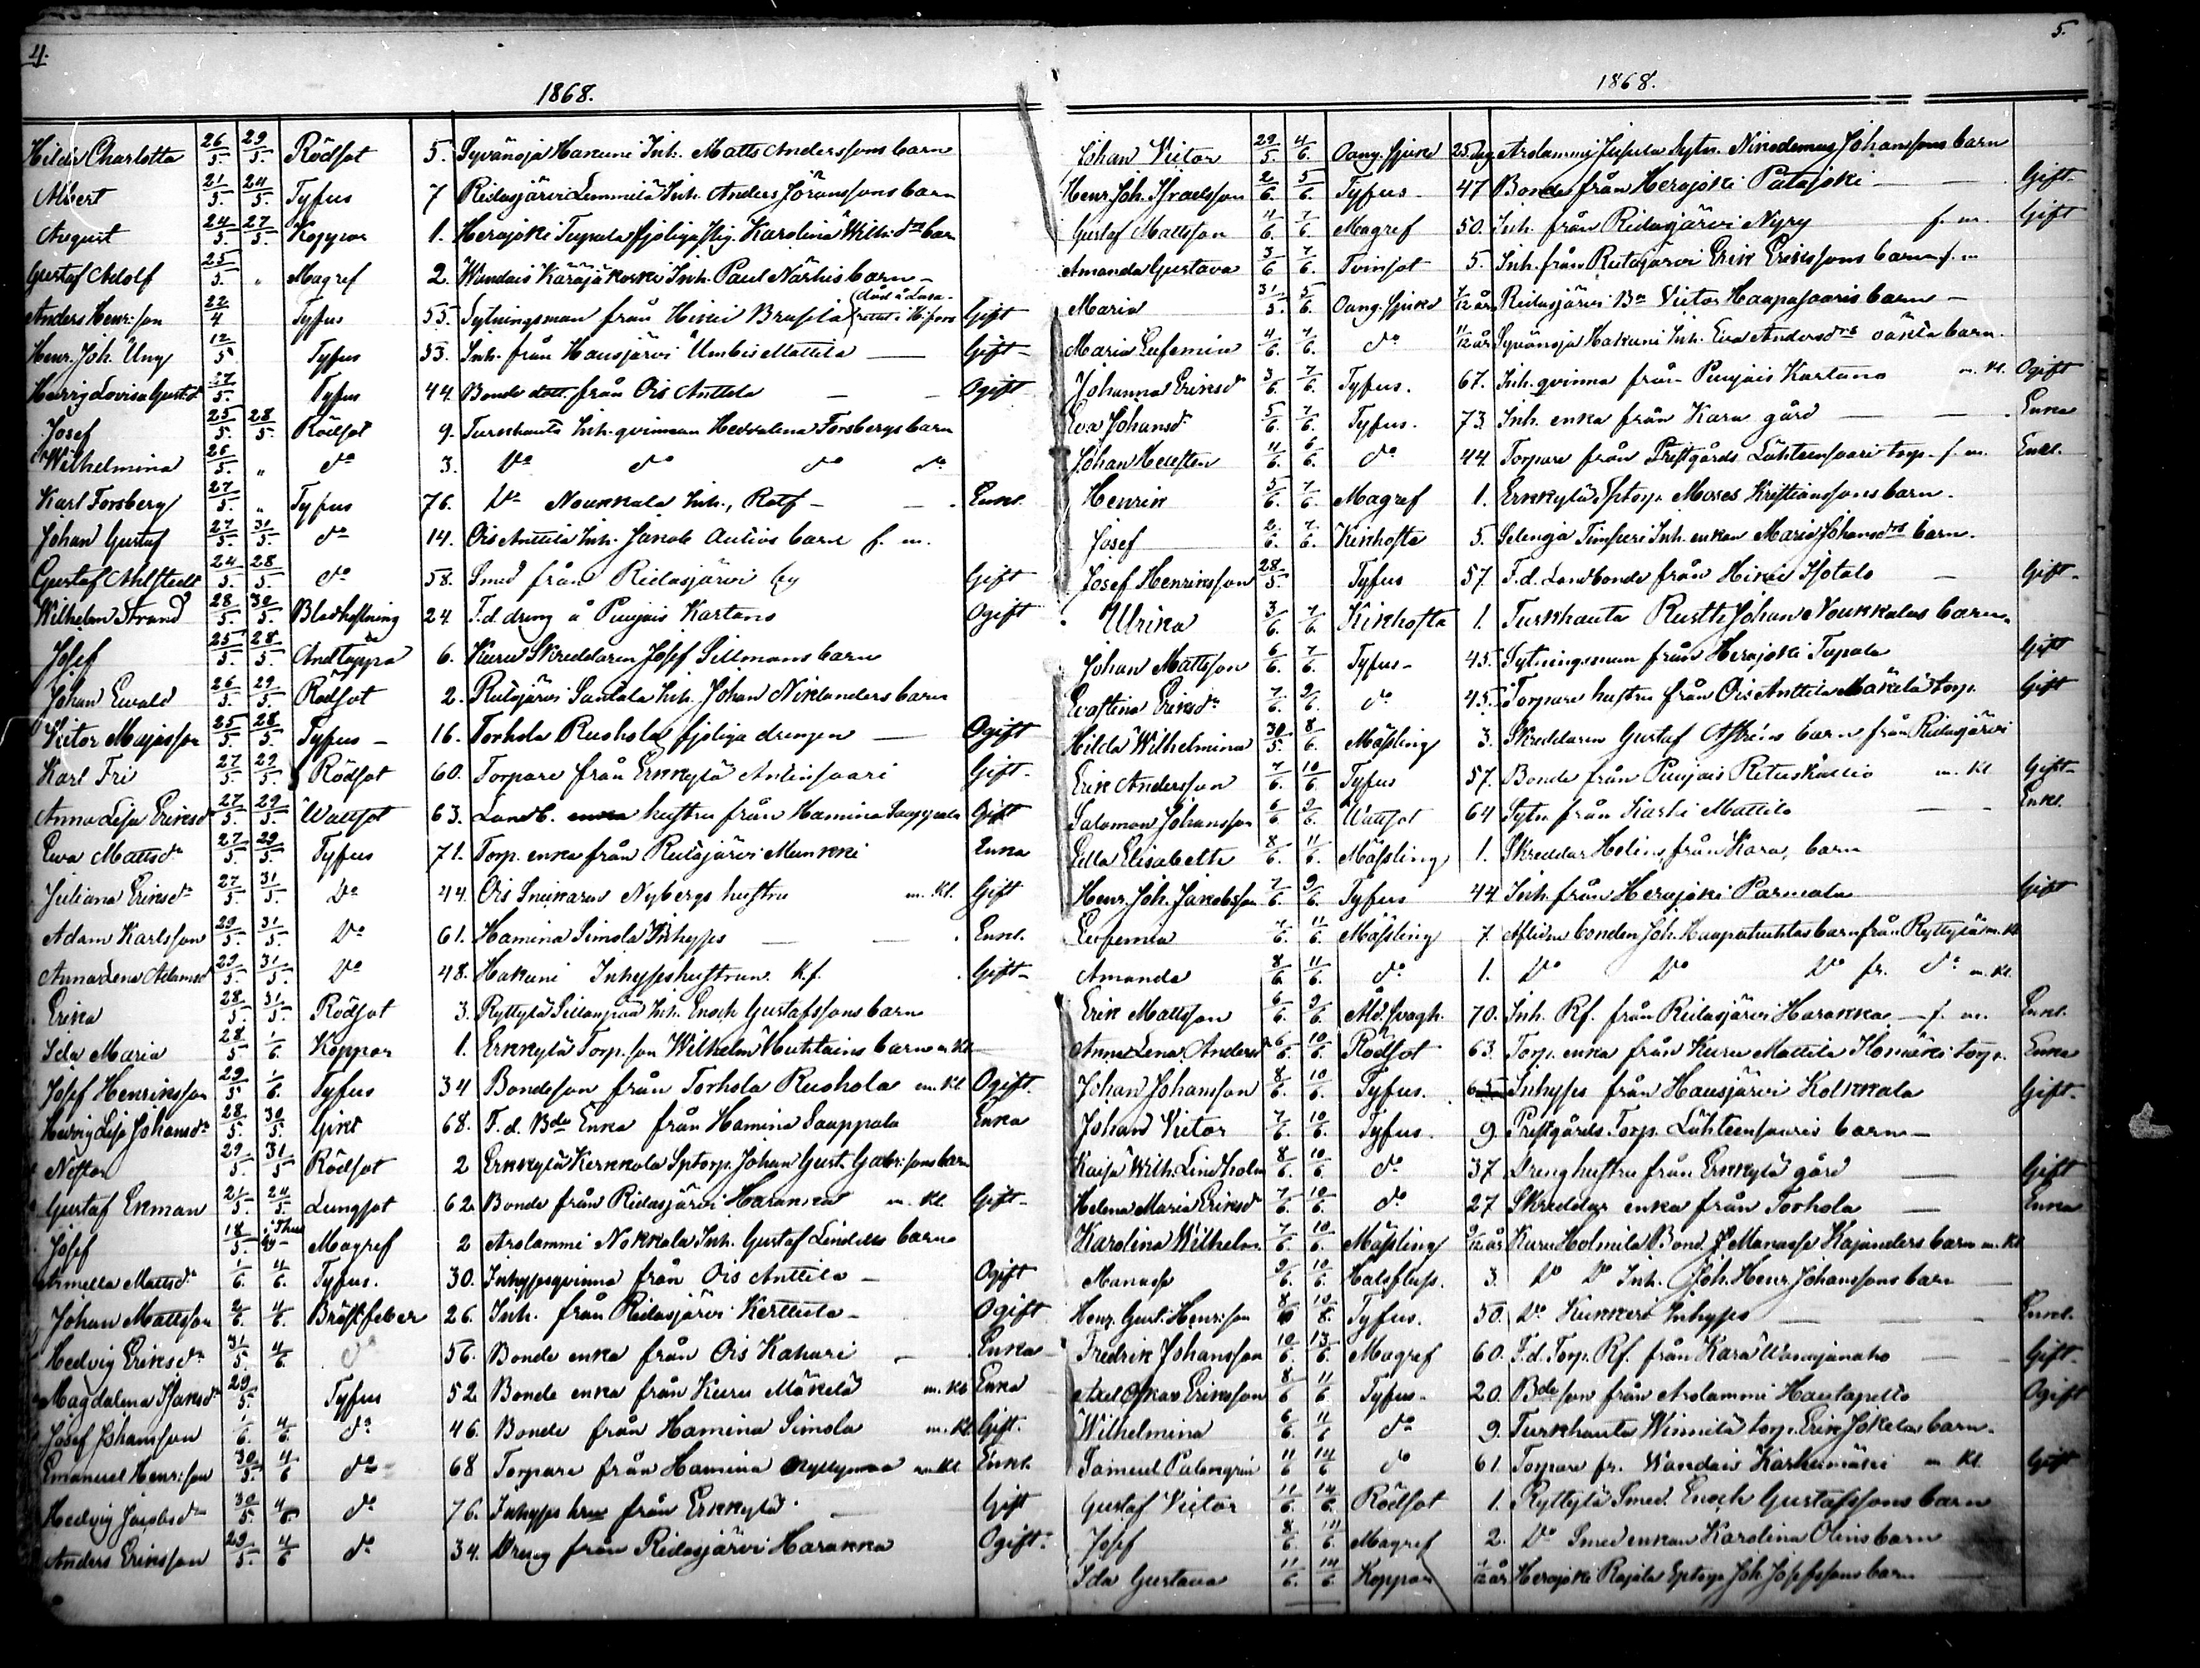 4.
1868.
Hilda Charlotta 26/5. 29/5. Rödsot 5. Syvänoja Hakuni Inh. Matts Anderssons barn
Albert 21/5. 24/5. Tyfus 7 Ridasjärvi Lemmilä Inh. Anders Göranssons barn
August 24/5. 27/5. Koppor 1. Herajoki Tupala Karolina Wilh. drs barn
Gustaf Adolf 25/5. " Magref 2. Wandais Käräjäkoski Inh. Paul Närhis barn –
Anders Henr:son 22/4 Tyfus 55. Sytningsman från Hikiä Gift
Henr. Joh. Ung 12/5 Tyfus 53. Inh. från Hausjärvi Umbis Mattila — Gift –
Hevvig Lovisa Gust.dr 27/5. Tyfus 44. Bonde dott. från Ois Anttila – – Ogift
Josef 25/5. 28/5. Rödsot 9. Turkhauta Inh. qvinnan Hedvalena Forsbergs barn
Wilhelmina 26/5. " do 3. Do do do do
Karl Forsberg 27/5. " Tyfus 76. Do Noukkala Inh., Rotf – – Enkl.
Johan Gustaf 27/5. 31/5. do 14. Ois Anttila Inh. Jakob Autios barn f. m.
Gustaf Ahlstedt 24/5. 28/5. do 58. Smed från Ridasjärvi by Gift
Wilhelm Strand 28/5. 30/5. Blodhostning 24. F.d. dreng å Puujais Kartano Ogift
Josef 25/5. 28/5. Andtäppa 6. Kuru Skreddaren Josef Sillmans barn
Johan Evald 26/5. 29/5. Rödsot 2. Rutajärvi Santala Inh. Johan Niklanders barn
Victor Majasson 25/5. 28/5. Tyfus – 16. Torhola Ruohola sjeliga drengen — Ogift
Karl Fri 27/5. 29/5. Rödsot 60. Torpare från Erkkylä Antinsaari Gift –
Anna Lisa Eriksdr 27/5. 29/5. Wattsot 63. Landb. hustru från Hamina Saappala Gift
Eva Mattsdr 27/5. 29/5. Tyfus 71. Torp. enka från Rutajärvi Munkki Enka
Juliana Eriksdr 27/5. 31/5. Do 44. Ois Snikaren Nybergs hustru m. Kl. Gift
Adam Karlsson 29/5. 31/5. Do 61. Hamina Simola Inhyses — — Enkl.
Anna Lena Adamsdr 29/5. 31/5. Do 48. Hakuni Inhyseshustrun K.f. Gift –
Erika 28/5. 31/5. Rödsot 3. Ryttylä Sillanpää Inh. Enoch Gustafssons barn
Ida Maria 28/5 1/6. Koppor 1. Erkkylä Torp. son Wilhelm Huhtains barn m. Kl.
Josef Henriksson 29/5 1/6. Tyfus 34 Bondeson från Torhola Ruohola m. Kl Ogift.
Hedvig Lisa Johansdr 28/5. 30/5. Gikt 68. F. d. Bde Enka från Hamina Saappala Enka
Nestor 29/5. 31/5 Rödsot 2 Erkkylä Kerkkola Sptorp. Johan Gust. Gabr:sons barn
Gustaf Ekman 21/5. 24/5. Lungsot 62. Bonde från Ridasjärvi Harakka m. Kl. Gift –
Josef 18/5. Magref 2 Arolammi Nokkala Inh. Gustaf Lindells barn
Armella Mattsdr 1/6. 4/6. Tyfus. 30. Inhysesqvinna från Ois Anttila – Ogift
Johan Mattsson 2/6. 4/6. Bröstfeber 26. Inh. från Ridasjärvi Kerttula – Ogift
Hedvig Eriksdr 31/5. 4/6 do 56. Bonde enka från Ois Kahari – Enka
Magdalena Isaksdr 29/5. Tyfus 52 Bonde enka från Kuru Mäkelä m. Kl Enka
Josef Johansson 1/6. 4/6 do 46. Bonde från Hamina Simola m. Kl. Gift.
Emanuel Henr:son 30/5 4/6 do 68 Torpare från Hamina m. Kl Enkl.
Hedvig Jacobsdr 30/5. 4/6. do 76. Inhyses från Erkkylä – Gift
Anders Eriksson 29/5. 4/6 do 34. Dreng från Ridasjärvi Harakka Ogift.
5.
1868.
Johan Victor 29/5. 4/6. Oang. sjukd 25 dag Arolammi Sytn. Nikodemus Johanssons barn
Henr. Joh. Israelsson 2/6. 5/6. Tyfus. 47 Bonde från Herajoki Patajoki — — Gift –
Gustaf Mattsson 4/6. 7/6. Magref 50. Inh. från Ridasjärvi Nyry f. m. Gift
Amanda Gustava 3/6 7/6. Tvinsot 5. Inh. från Rutajärvi Erik Erikssons barn f. m
Maria 31/5. 5/6. Oang. sjukd 7/12 år Ridasjärvi Bn Victor Haapasaaris barn –
Maria Eufemia 4/6. 7/6. do 11/12 år Syvänoja Hakuni Inh. Eva Andersdrs oäkta barn.
Johanna Eriksdr 3/6 7/6. Tyfus. 67. Inh. qvinna från Puujais Kartano m. Kl. Ogift
Eva Johansdr 5/6. 7/6. Tyfus. 73. Inh. enka från Kara gård — — Enka
Johan Helsten 4/6. 6/6. do 44. Torpare från Prestgårds Lähteensaari torp f. m. Enkl.
Henrik 5/6. 7/6. Magref 1. Erkkylä Sptorp. Moses Kristianssons barn.
Josef 2/6. 7/6. Kikhosta 5. Selenoja Timperi Inh. enkan Maria Johansdrs barn.
Josef Henriksson 28/5. Tyfus 57. F.d. Landbonde från Hikiä Isotalo – Gift –
Ulrika 3/6. 7/6. Kikhosta 1. Turkhauta Rusth Johan Noukkalas barn.
Johan Mattsson 6/6. 7/6. Tyfus – 45. Sytningsman från Herajoki Tupala Gift
Evastina Eriksdr 7/6. 9/6. do 45. Torpare hustru från Ois Anttila Mäkelä torp. Gift
Hilda Wilhelmina 30/5. 8/6. Mässling 3. Skreddaren Gustaf barn från Ridasjärvi
Erik Andersson 7/6. 10/6. Tyfus 57. Bonde från Puujais Retuskallio m. Kl Gift –
Salomon Johansson 6/6. 9/6. Wattsot 64 Sytn från Karhi Mattila — Enkl.
Edla Elisabeth 8/6. 11/6. Mässling 1. Skreddar Helins, från Kara, barn
Henr. Joh. Jakobsson 7/6. 9/6. Tyfus 44 Inh. från Herajoki Parmala Gift
Eufemia 7/6. 11/6. Mässling 7. Aflidna bonden Joh. Haapahuhtas barn från Ryttylä m. Kl
Amanda 8/6. 11/6. do 1. Do Do Do fr. do m. Kl.
Erik Mattsson 6/6. 9/6. Åld. svagh. 70. Inh. Rf. från Ridasjärvi Harakka – f. m. Enkl.
Anna Lena Andersdr 6/6. 10/6. Rödsot 63. Torp. enka från Kuru Mattila torp. Enka
Johan Johansson 8/6. 10/6. Tyfus. 65. Inhyses från Hausjärvi Kolkkala Gift –
Johan Victor 7/6. 10/6. Tyfus. 9. Prestgårds Torp. Lähteensaaris barn –
Kaisa Wilh. Lindholm 8/6. 10/6. do 37 Dreng hustru från Erkkylä gård — Gift
Helena Maria Eriksdr 7/6. 10/6. do 27 Skreddar enka från Torhola — Enka
Karolina Wilhelm. 7/6. 10/6. Mässling 9/12 år Kuru Holmila Bond. Manasse Kajanders barn m. Kl
Manasse 9/6. 10/6. Halsfluss. 3. Do Do Inh. Joh. Henr. Johanssons barn —
Henr. Gust. Henr:son 8/6 10/8. Tyfus. 50. Do Kukkeri Inhyses — Enkl.
Fredrik Johansson 10/6. 13/6. Magref 60. F.d. Torp. Rf. från Kara — Gift –
Axel Oskar Eriksson 8/6 11/6 Tyfus. 20. Bdeson från Arolammi Hautapelto Ogift
Wilhelmina 6/6 11/6 do 9. Turkhauta Winnilä torp. Erik Jokelas barn.
Samuel Palmgrén 11/6 14/6 do 61. Torpare fr. Wandais Karhumäki m Kl. Gift
Gustaf Victor 11/6. 14/6. Rödsot 1. Ryttylä Smed. Enoch Gustafssons barn
Josef 8/6. 11/6. Magref 2. Do Smedenkan Karolina Olins barn
Ida Gustava 11/6. 14/6. Koppor 1/12 år Herajoki Rajala Sptorp. Joh. Josefssons barn